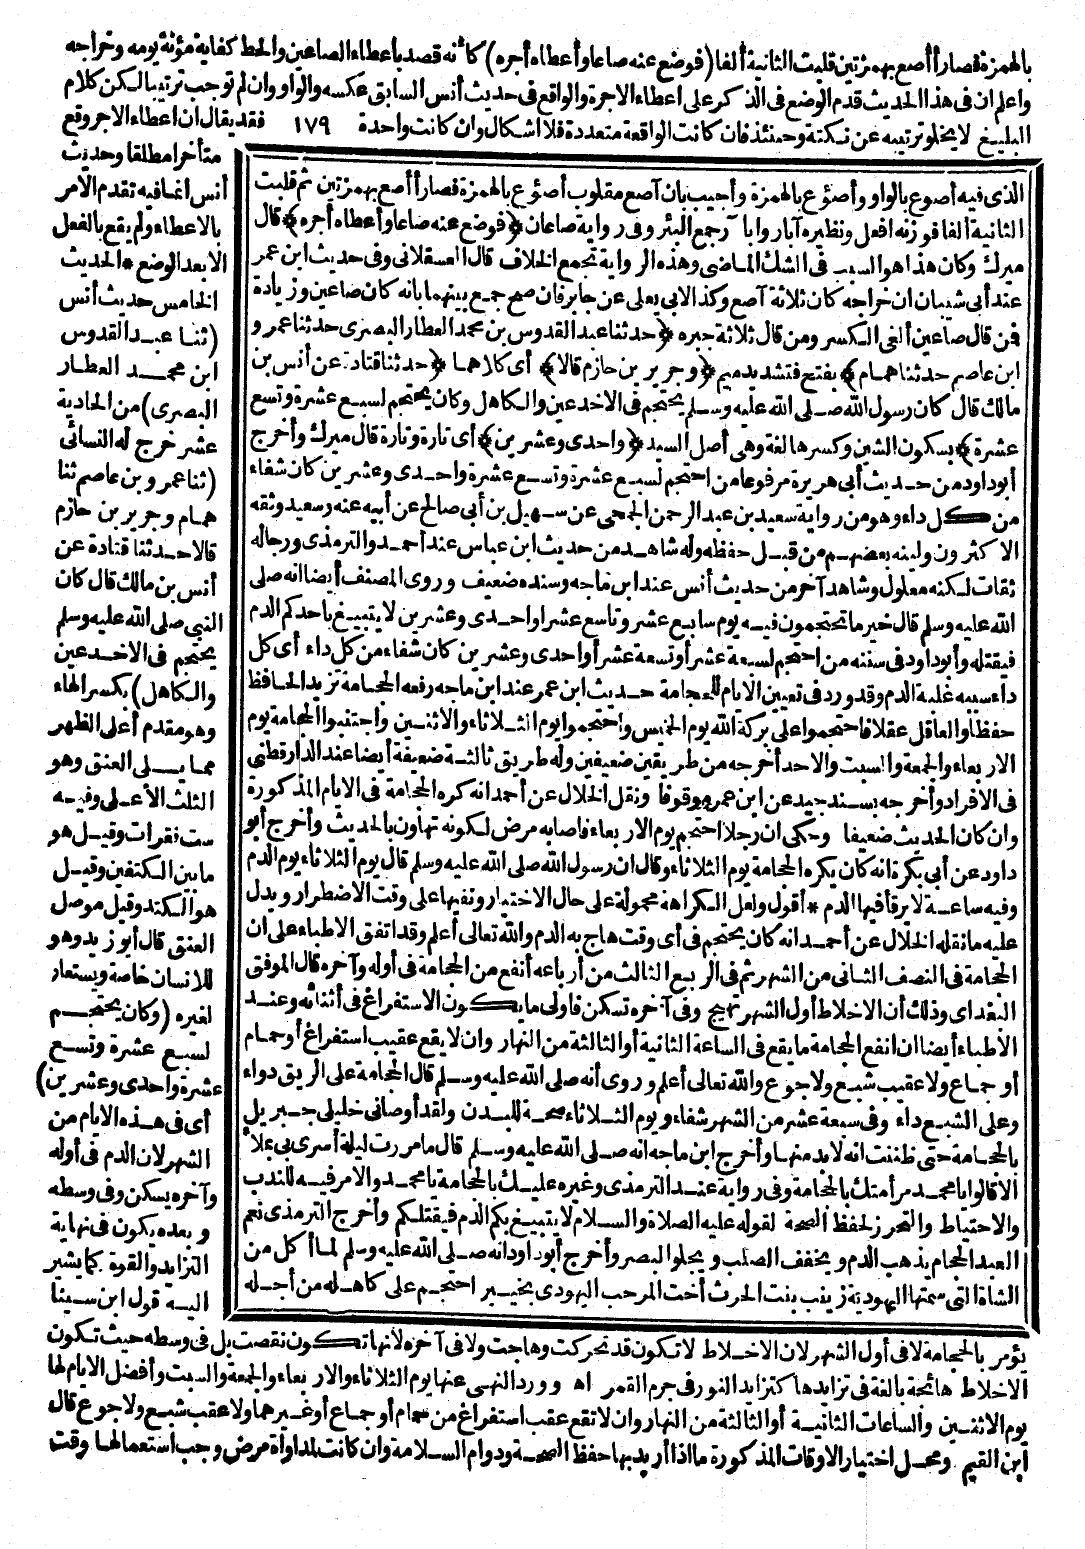 بالهمزة فصار أأصع بهمزتين قلبت الثانية ألفا (فوضع عنه صاعا وأعطاه أجره) كأنه قصد بأعطاء الصاعين والحط كفاية مؤنة يومه وخراجه
واعلم ان فى هذا الحديث قدم الوضع فى الذكر على اعطاء الاجرة والواقع فى حديث أنس السابق عكسه والواو وان لم توجب ترتيبا لكن كلام
البليغ لا يخلو ترتيبه عن نكتة وحينئذ فان كانت الواقعة متعددة فلا اشكال وان كانت واحدة ١٧٩ فقد يقال ان اعطاء الاجر وقع
متأخرا مطلقا وحديث
أنس انما فيه تقدم الامر
بالاعطاء ولم يقع بالفعل
الا بعد الوضع * الحديث
الخامس حديث أنس
(ثنا عبد القدوس
ابن محمد العطار
البصرى) من الحادية
عشر خرج له النسائى
(ثنا عمرو بن عاصم ثنا
همام وجرير بن حازم
قالا حدثنا قتادة عن
أنس بن مالك قال كان
النبى صلى الله عليه وسلم
يحتجم فى الاخدعين
والكاهل) بكسر الهاء
وهو مقدم أعلى الظهر
مما يلى العنق وهو
الثلث الأعلى وفيه
ست نقرات وقيل هو
مابين الكتفين وقيل
هو الكتد وقيل موصل
العنق قال أبو زيد وهو
للانسان خاصة ويستعار
لغيره (وكان يحتجم
لسبع عشرة وتسع
عشرة واحدى وعشرين)
أى فى هذه الايام من
الشهر لان الدم فى أوله
وآخره يسكن وفى وسطه
وبعده يكون فى نهاية
التزايد والقوة كما يشير
اليه قول ابن سينا
الذى فيه أصوع بالواو وأصؤع بالهمزة وأجيب بان آصع مقلوب أصؤع بالهمزة فصار أأصع بهمزتين ثم قلبت
الثانية ألفا فوزنه افعل ونظيره آبار وابآر جمع البئر وفى رواية صاعان ﴿فوضع عنه صاعا وأعطاه أجره﴾ قال
ميرك وكان هذا هو السبب فى الشك الماضى وهذه الرواية تجمع الخلاف قال العسقلانى وفى حديث ابن عمر
عند أبى شيبان ان خراجه كان ثلاثة آصع وكذا لابى يعلى عن جابر فان صح جمع بينهما بانه كان صاعين وزيادة
فمن قال صاعين ألغى الكسر ومن قال ثلاثة جبره ﴿حدثنا عبد القدوس بن محمد العطار البصرى حدثنا عمرو
ابن عاصم حدثنا همام﴾ بفتح فتشديد ميم ﴿وجرير بن حازم قالا﴾ أى كلاهما ﴿حدثنا قتادة عن أنس بن
مالك قال كان رسول الله صلى الله عليه وسلم يحتجم فى الاخدعين والكاهل وكان يحتجم لسبع عشرة وتسع
عشرة﴾ بسكون الشين وكسرها لغة وهى أصل السيد ﴿واحدى وعشرين﴾ أى تارة وتارة قال ميرك وأخرج
أبو داود من حديث أبى هريرة مرفوعا من احتجم لسبع عشرة وتسع عشرة واحدى وعشرين كان شفاء
من كل داء وهو من رواية سعيد بن عبد الرحمن الجمحى عن سهيل بن أبى صالح عن أبيه عنه وسعيد وثقه
الاكثرون ولينه بعضهم من قبل حفظه وله شاهد من حديث ابن عباس عند أحمد والترمذى ورجاله
ثقات لكنه معلول وشاهد آخر من حديث أنس عند ابن ماجه وسنده ضعيف وروى المصنف أيضا انه صلى
الله عليه وسلم قال خير ما تحتجمون فيه يوم سابع عشر وتاسع عشر او احدى وعشرين لا يتبيغ باحدكم الدم
فيقتله وأبو داود فى سننه من احتجم لسبعة عشر أو تسعة عشر أو احدى وعشرين كان شفاء من كل داء أى كل
داء سببه غلبة الدم وقد ورد فى تعيين الايام للحجامة حديث ابن عمر عند ابن ماجه رفعه الحجامة تزيد الحافظ
حفظا والعاقل عقلا فاحتجموا على بركة الله يوم الخميس واحتجموا يوم الثلاثاء والاثنين واجتنبوا الحجامة يوم
الاربعاء والجمعة والسبت والاحد أخرجه من طريقين ضعيفين وله طريق ثالثة ضعيفة أيضا عند الدارقطنى
فى الافراد وأخرجه بسند جيد عن ابن عمر موقوفا ونقل الخلال عن أحمد انه كره الحجامة فى الايام المذكورة
وان كان الحديث ضعيفا وحكى ان رجلا احتجم يوم الاربعاء فاصابه مرض لكونه تهاون بالحديث وأخرج أبو
داود عن أبى بكرة انه كان يكره الحجامة يوم الثلاثاء وقال ان رسول الله صلى الله عليه وسلم قال يوم الثلاثاء يوم الدم
وفيه ساعة لا يرقأ فيها الدم * أقول ولعل الكراهة محمولة على حال الاختيار ونفيها على وقت الاضطرار ويدل
عليه ما نقله الخلال عن أحمد انه كان يحتجم فى أى وقت هاج به الدم والله تعالى أعلم وقد اتفق الاطباء على ان
الحجامة فى النصف الثانى من الشهر ثم فى الربع الثالث من أرباعه أنفع من الحجامة فى أوله وآخره قال الموفق
البغدادى وذلك أن الاخلاط أول الشهر تهيج وفى آخره تسكن فاولى ما يكون الاستفراغ فى أثنائه وعند
الأطباء أيضا ان انفع الحجامة ما يقع فى الساعة الثانية أو الثالثة من النهار وان لا يقع عقيب استفراغ أو حمام
أو جماع ولا عقيب شبع ولا جوع والله تعالى أعلم وروى أنه صلى الله عليه وسلم قال الحجامة على الريق دواء
وعلى الشبع داء وفى سبعة عشر من الشهر شفاء ويوم الثلاثاء صحة للبدن ولقد أوصانى خليلى جبريل
بالحجامة حتى ظننت انه لا بد منها وأخرج ابن ماجه انه صلى الله عليه وسلم قال ما مررت ليلة أسرى بى بملأ
الا قالوا يا محمد مر أمتك بالحجامة وفى رواية عند الترمذى وغيره عليك بالحجامة يا محمد والامر فيه للندب
والاحتياط والتحرز لحفظ الصحة لقوله عليه الصلاة والسلام لا يتبيغ بكم الدم فيقتلكم وأخرج الترمذى نعم
العبد الحجام يذهب الدم ويخفف الصلب ويجلو البصر وأخرج أبو داود انه صلى الله عليه وسلم لما أكل من
الشاة التى سمتها اليهودية زينب بنت الحرث أخت المرحب اليهودى بخيبر احتجم على كاهله من أجله
يؤمر بالحجامة لا فى أول الشهر لان الاخلاط لا تكون قد تحركت وهاجت ولا فى آخره لانها تكون نقصت بل فى وسطه حيث تكون
الاخلاط هائجة بالغة فى تزايدها كتزايد النور فى جرم القمر اه وورد النهى عنها يوم الثلاثاء والاربعاء والجمعة والسبت وأفضل الايام لها
يوم الاثنين والساعات الثانية أو الثالثة من النهار وان لا تقع عقب استفراغ من حمام أو جماع أو غيرهما ولا عقب شبع ولا جوع قال
ابن القيم ومحل اختيار الاوقات المذكورة ما اذا أريد بها حفظ الصحة ودوام السلامة وان كانت لمداواة مرض وجب استعمالها وقت